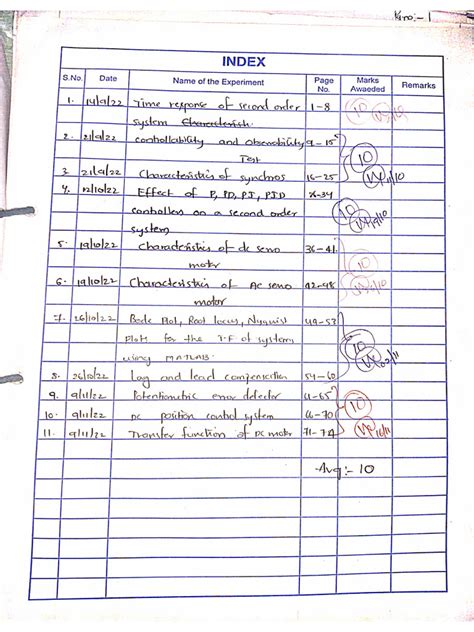 Kno:- 1
INDEX
S.No. Date Name of the Experiment Page No. Marks Awaeded Remarks
1. 14/9/22 Time response of second order 1-8 10
system Characterstih.
2. 21/9/22 controllability and Obsenability 9-15
Test 10
3. 21/9/22 Characteristics of synchros 16-25
4. 12/10/22 Effect of P, PD, PI, PID 26-34
controllers on a second order 10
system
5. 19/10/22 Characteristics of dc servo 36-41
motor 10
6. 19/10/22 Characteristics of Ac servo 42-48
motor
7. 26/10/22 Bode Plot, Root locus, Nyquist 49-53
Plots for the T.F of system 10
using MATLAB.
8. 26/10/22 Lag and lead compensation 54-60
9. 9/11/22 Potentiometric error detector 61-65
10. 9/11/22 DC position control system 66-70 10
11. 9/11/22 Transfer function of DC motor 71-74
Avg:- 10